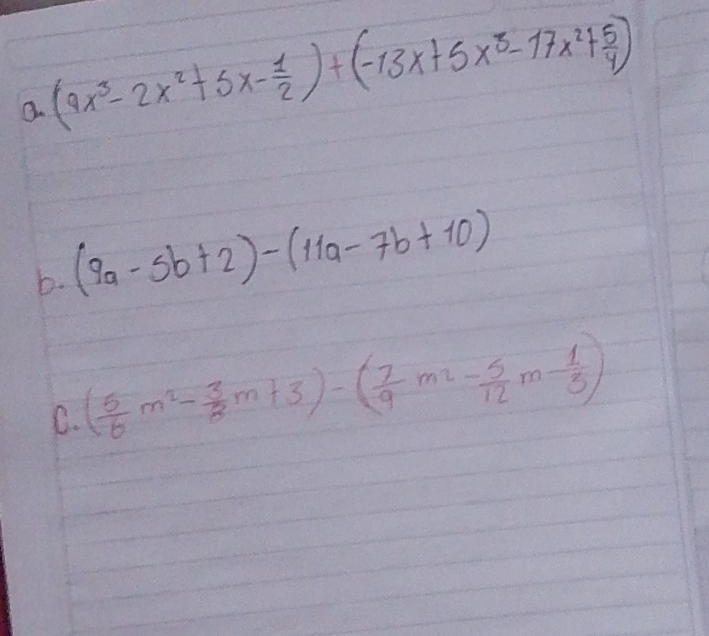 a. (9x³ - 2x² + 5x - 1/2) + (-13x + 5x³ - 17x² + 5/4)
b. (9a - 5b + 2) - (11a - 7b + 10)
c. (5/6 m² - 3/8 m + 3) - (7/9 m² - 5/12 m - 1/3)